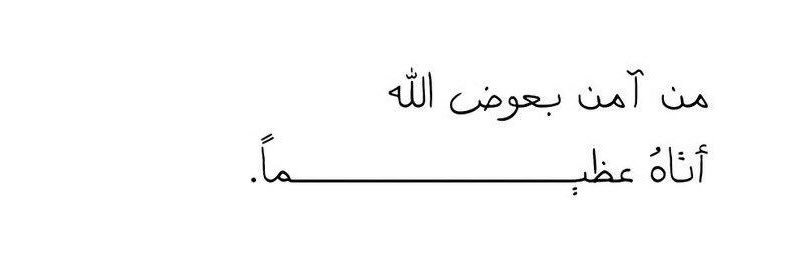 من آمن بعوض الله
أتاهُ عظيـــــــــــــــــــــماً.